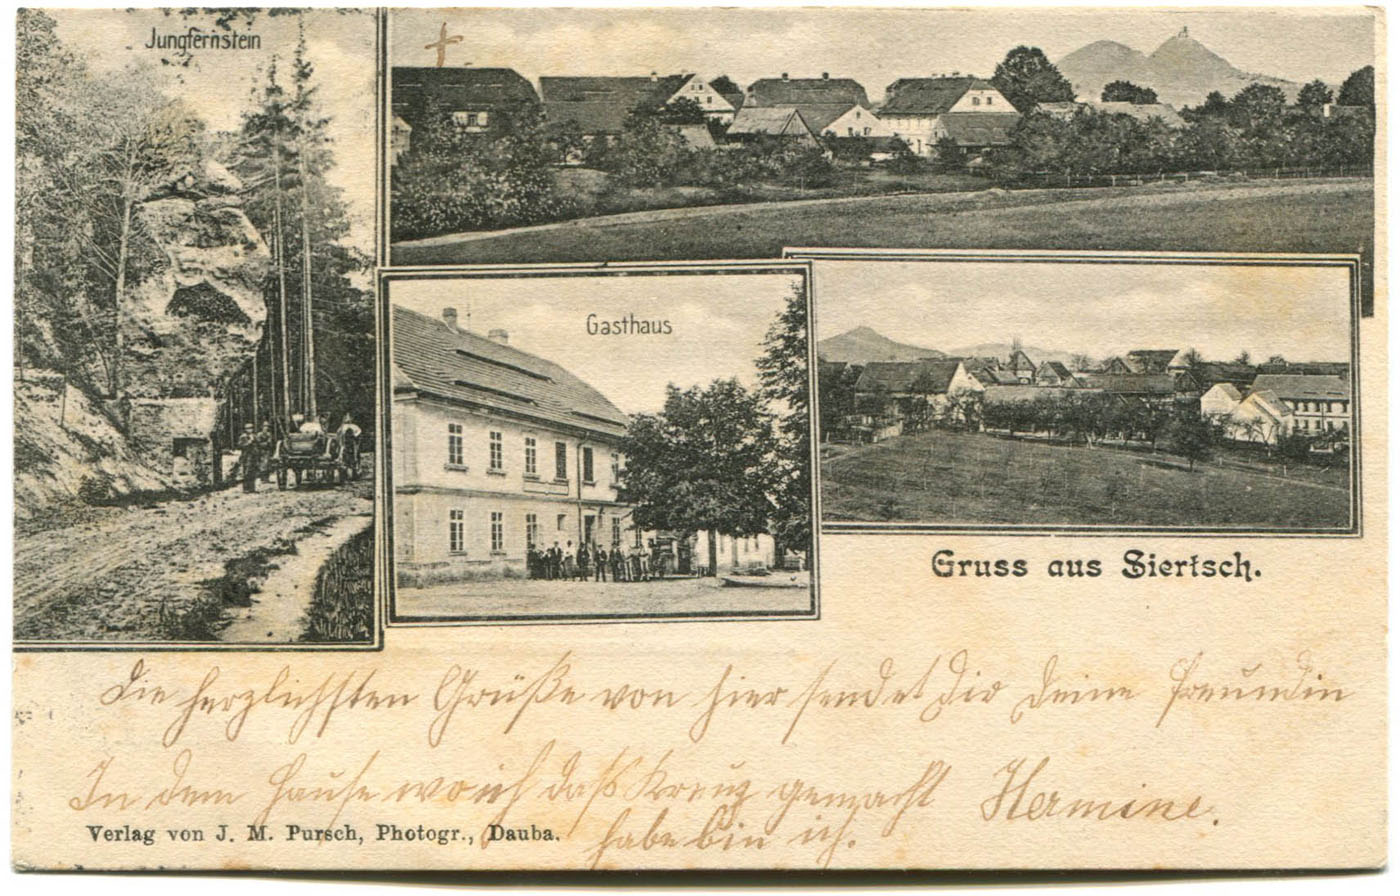 Jungfernstein
Gasthaus
Gruss aus Siertsch.
Die herzlichsten Grüße von hier sendet Dir Deine Freundin
In dem Hause wo ich daß Kreuz gemacht Hermine.
habe bin ich.
Verlag von J. M. Pursch, Photogr., Dauba.